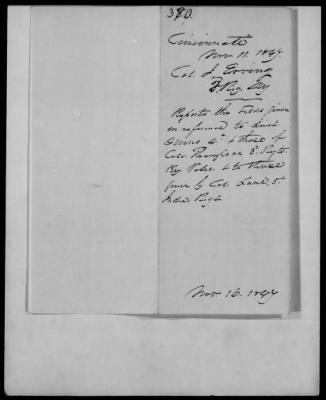 380.
Cincinnati
Nov. 11. 1847.
Col. J. Erving
2. Reg. Arty
Reports the orders given
in reference to Lieut
4th & those of
Col. Thompson 3. Regt.
Ky. Vols. & to those
given by Col. Lane, 5th
India. Regt
Nov. 16. 1847